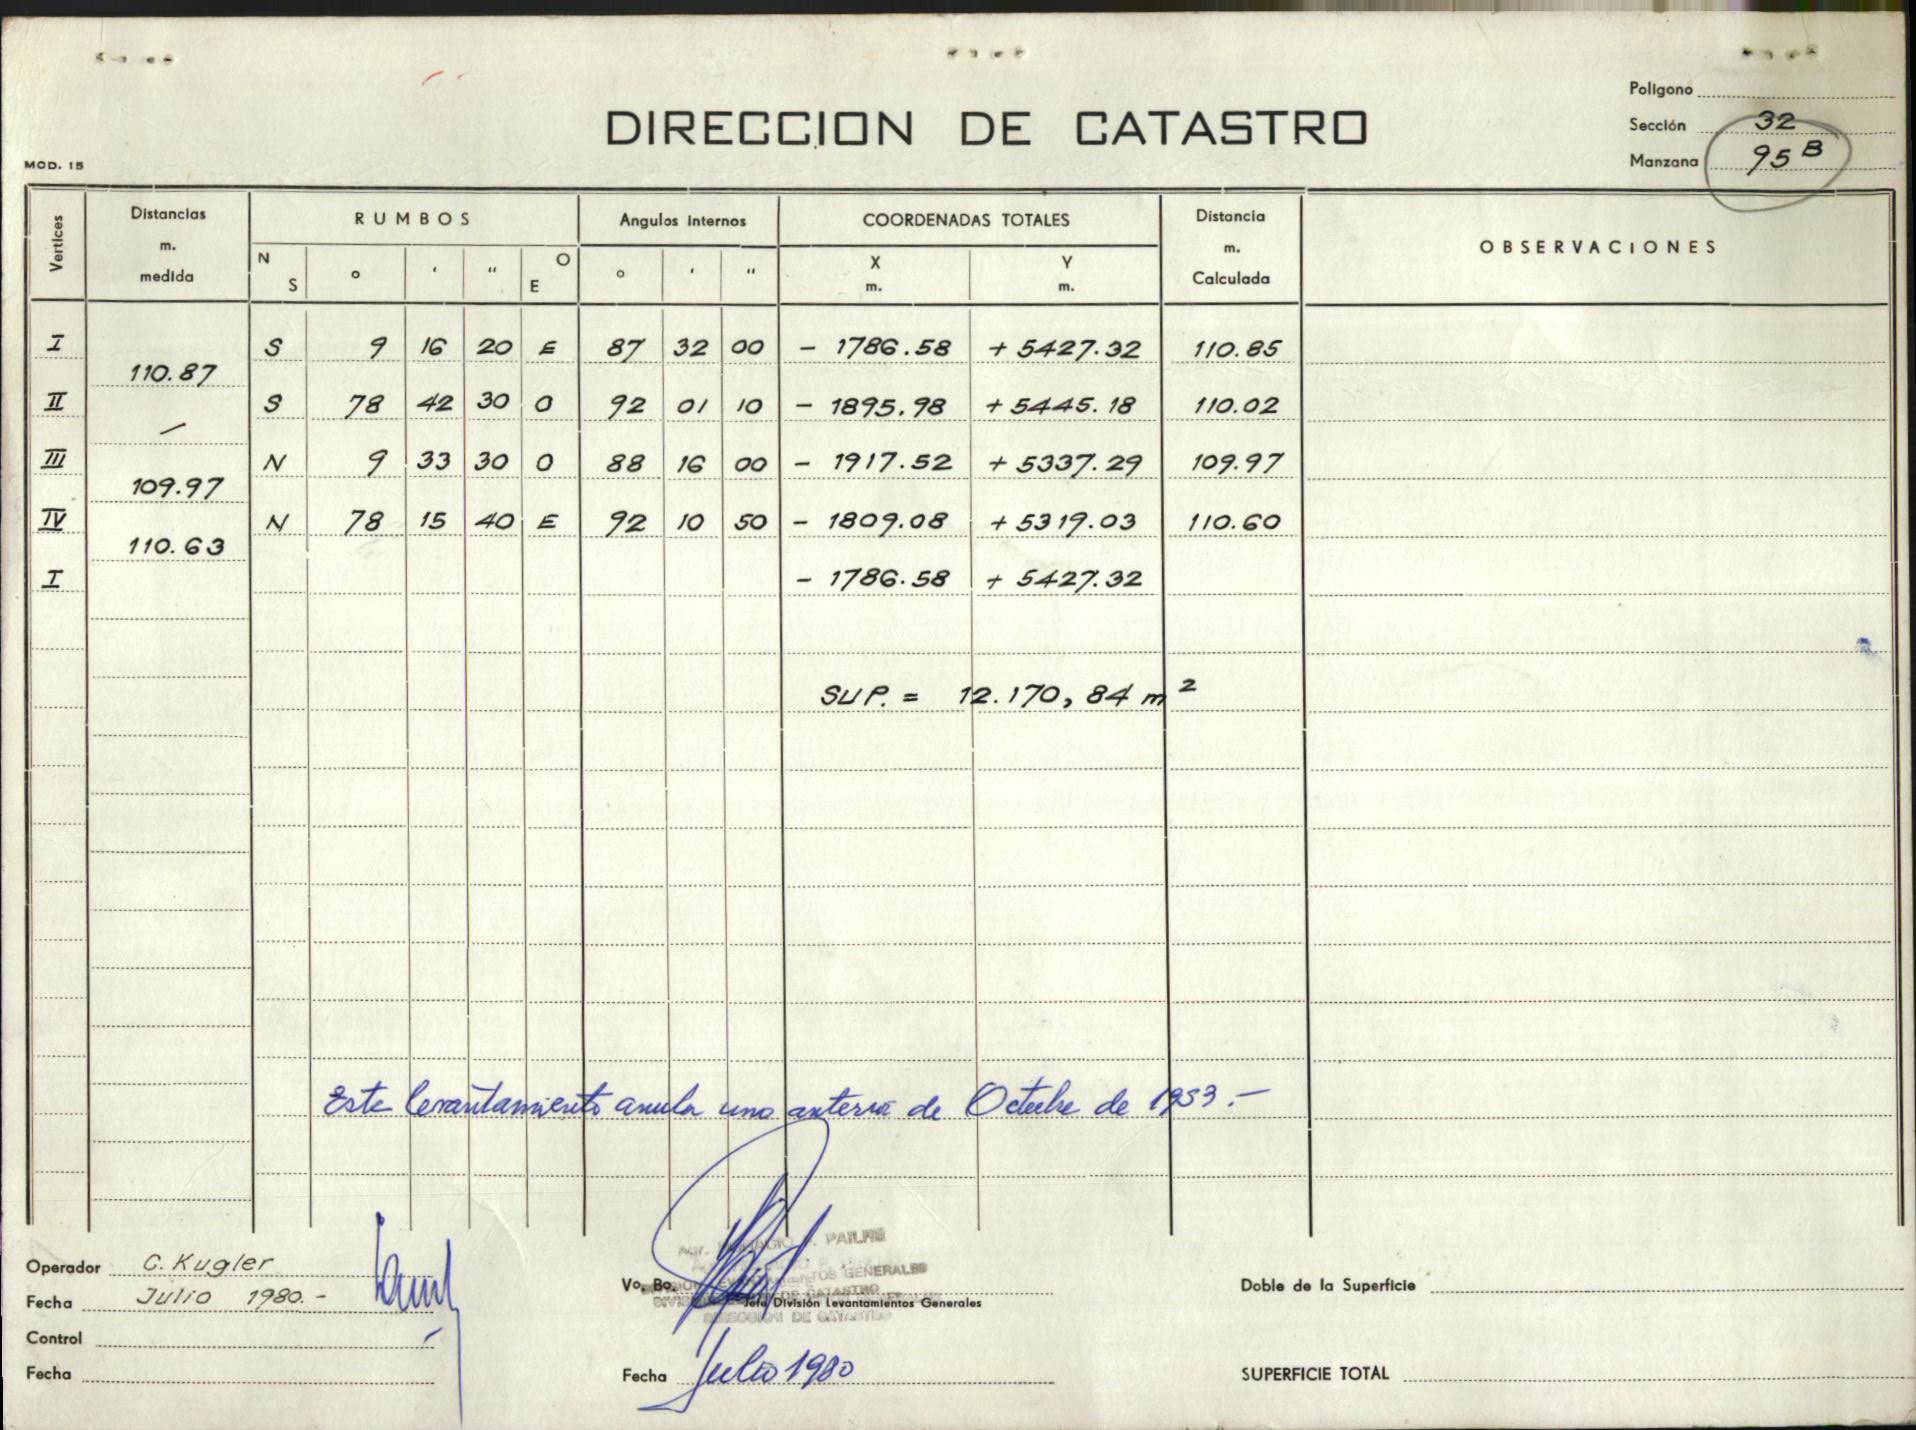 DIRECCION DE CATASTRO
Poligono
Sección 32
Manzana 95 B
MOD. 15
Vertices
Distancias m. medida
RUMBOS
Angulos Internos
COORDENADAS TOTALES
Distancia m. Calculada
OBSERVACIONES
N S ° ' " O E ° ' " X m. Y m.
I S 9 16 20 E 87 32 00 - 1786.58 + 5427.32 110.85
110.87
II S 78 42 30 O 92 01 10 - 1895.98 + 5445.18 110.02
—
III N 9 33 30 O 88 16 00 - 1917.52 + 5337.29 109.97
109.97
IV N 78 15 40 E 92 10 50 - 1809.08 + 5319.03 110.60
110.63
I - 1786.58 + 5427.32
SUP. = 12.170,84 m²
Este levantamiento anula uno anterior de Octubre de 1953.-
Operador C. Kugler
Fecha Julio 1980.-
Control
Fecha
Vo. Bo.
Jefe División Levantamientos Generales
Fecha Julio 1980
Doble de la Superficie
SUPERFICIE TOTAL